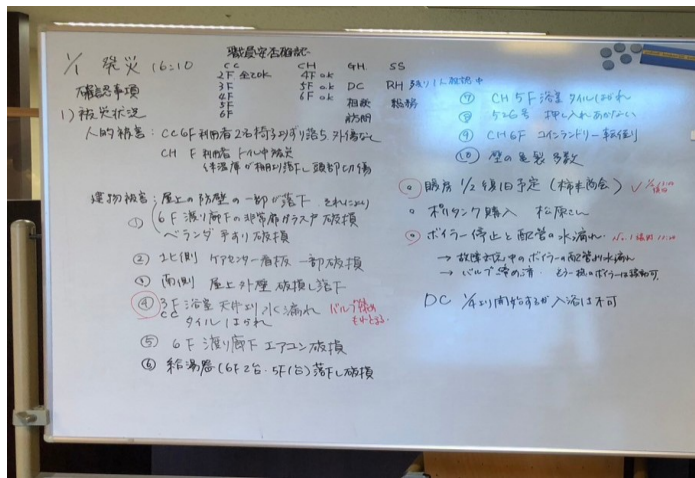 1/1 発災 16:10
職員安否確認
CC CH GH SS
2F 全て ok 4F ok
3F 5F ok DC RH
4F 6F ok 相談 総務
5F 訪問
6F
確認事項
1) 被災状況
人的被害：CC 6F 利用者2名椅子よりずり落ち、外傷なし
CH F 利用者 トイレ中被災
体温庫が棚より落下し頭部切傷
建物被害：屋上の防壁の一部が落下 それにより
① 6F 渡り廊下の非常扉ガラス戸破損
ベランダ 手すり破損
② 北側 ケアセンター看板 一部破損
③ 南側 屋上外壁 破損し落下
④ 3F 浴室 天井より水漏れ バルブ締め
CC タイルはがれ
⑤ 6F 渡り廊下 エアコン破損
⑥ 給湯器(6F 2台・5F 1台)落下し破損
⑦ CH 5F 浴室 タイルはがれ
⑧ 526号 押し入れあかない
⑨ CH 6F コインランドリー転倒
⑩ 壁の亀裂 多数
○ 暖房 1/2 復旧予定 (柿本商会)
○ ポリタンク購入 松原さん
○ ボイラー停止と配管の水漏れ
→ 故障対応中のボイラーの配管が水漏れ
→ バルブ閉め済 もう一機のボイラーは稼動可
DC 1/4より開始するが入浴は不可